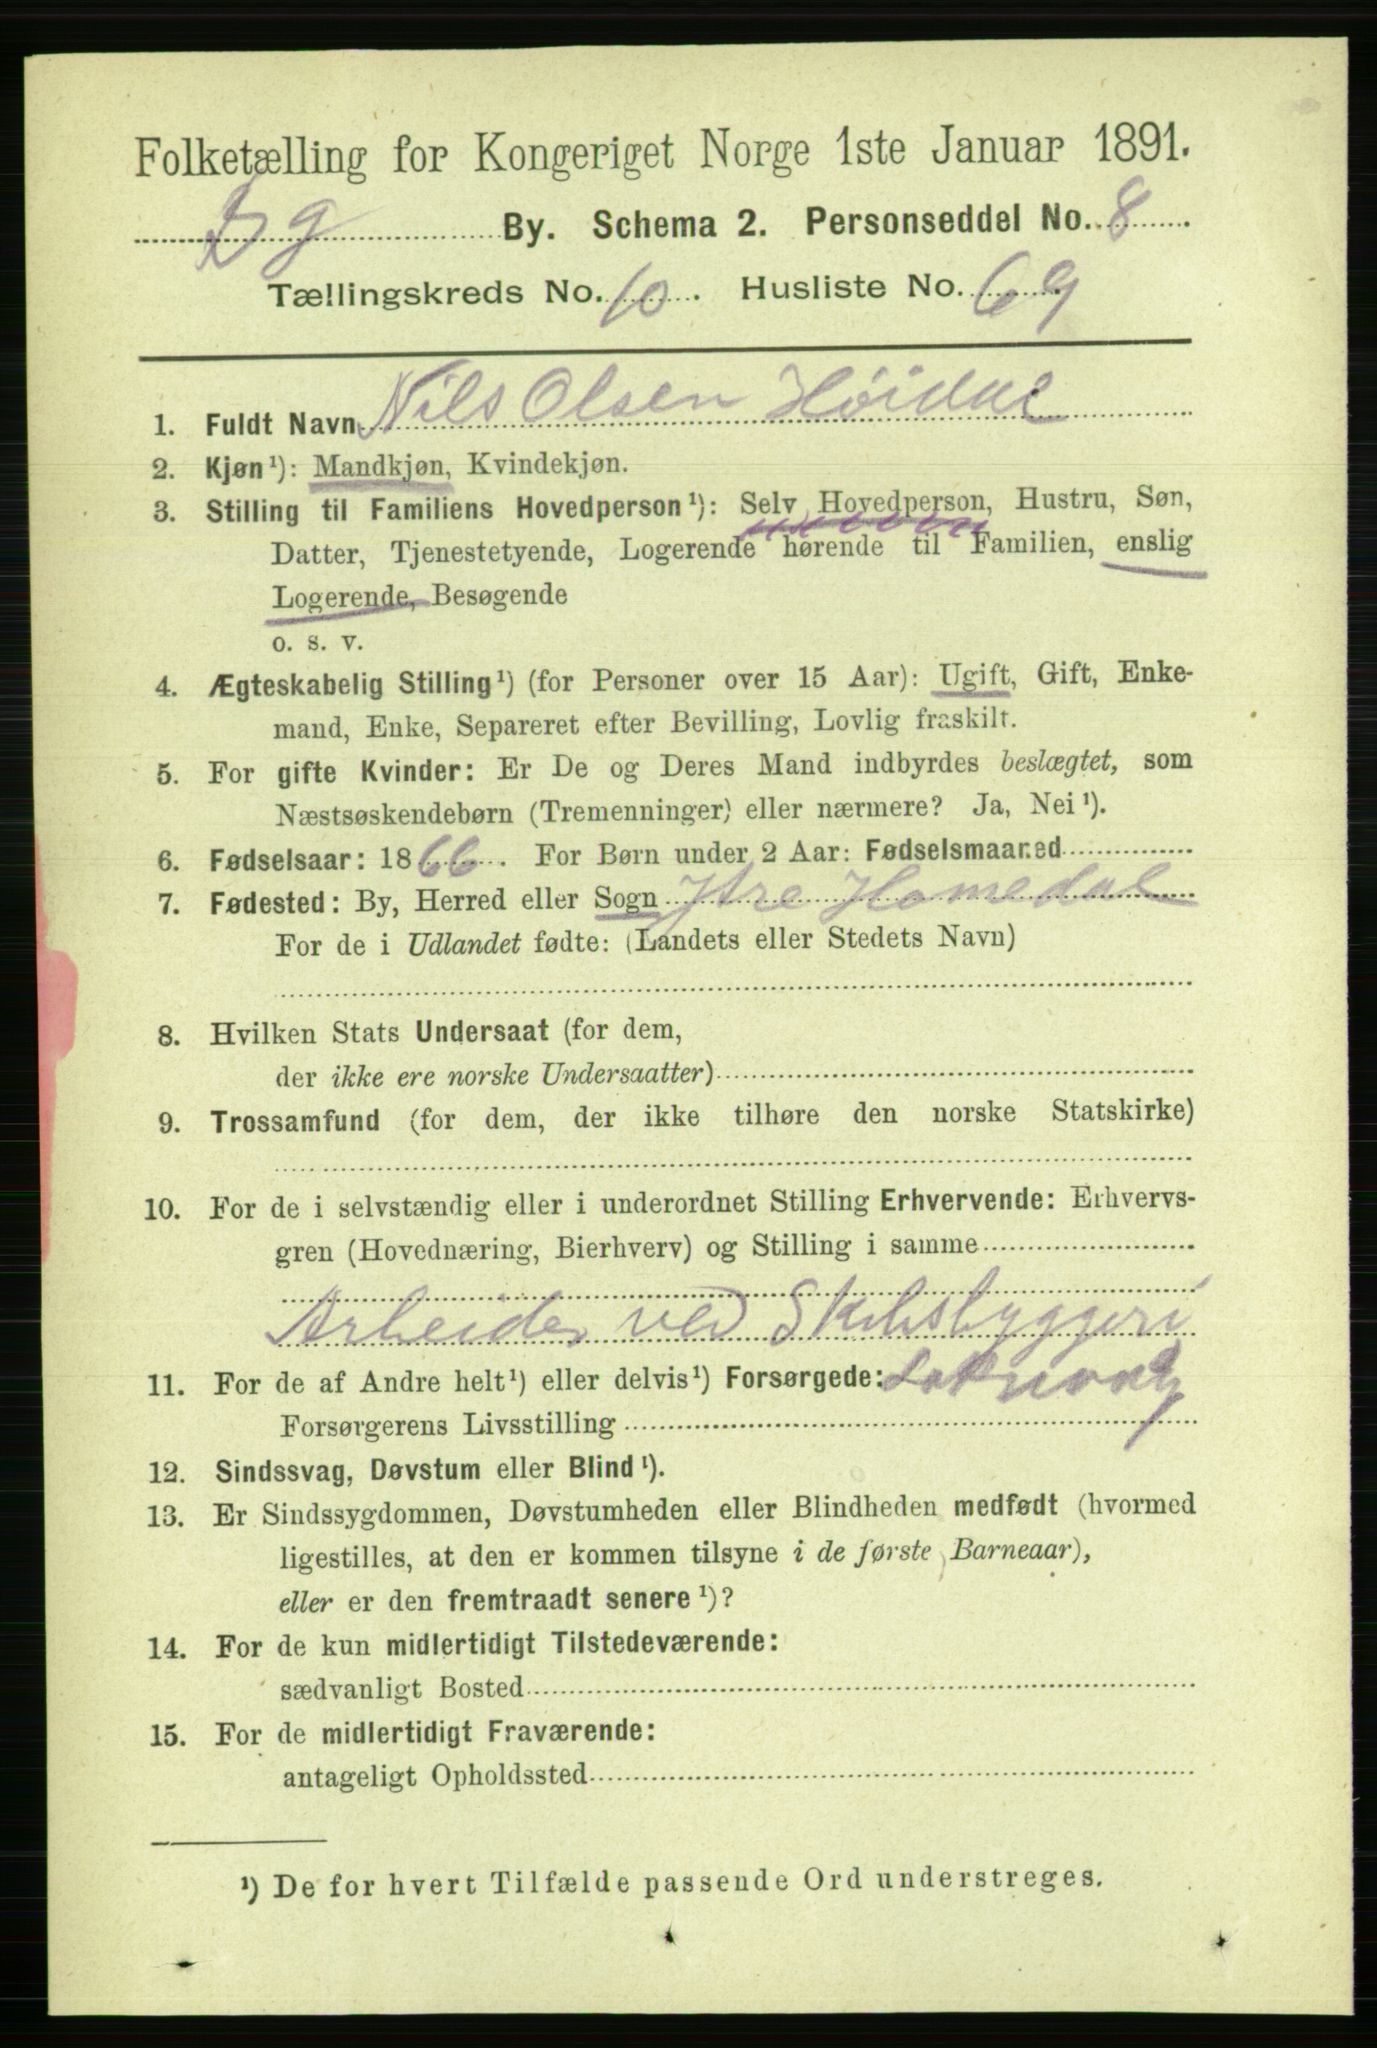 Folketælling for Kongeriget Norge 1ste Januar 1891.
Bg By. Schema 2. Personseddel No. 8
Tællingskreds No. 10. Husliste No. 69
1. Fuldt Navn Nils Olsen Höidal
2. Kjøn¹): Mandkjøn, Kvindekjøn.
3. Stilling til Familiens Hovedperson¹): Selv Hovedperson, Hustru, Søn,
Datter, Tjenestetyende, Logerende hørende til Familien, enslig
Logerende, Besøgende
o. s. v.
4. Ægteskabelig Stilling¹) (for Personer over 15 Aar): Ugift, Gift, Enke-
mand, Enke, Separeret efter Bevilling, Lovlig fraskilt.
5. For gifte Kvinder: Er De og Deres Mand indbyrdes beslægtet, som
Næstsøskendebørn (Tremenninger) eller nærmere? Ja, Nei¹).
6. Fødselsaar: 1866. For Børn under 2 Aar: Fødselsmaaned
7. Fødested: By, Herred eller Sogn Ytre Homedal
For de i Udlandet fødte: (Landets eller Stedets Navn)
8. Hvilken Stats Undersaat (for dem,
der ikke ere norske Undersaatter)
9. Trossamfund (for dem, der ikke tilhøre den norske Statskirke)
10. For de i selvstændig eller i underordnet Stilling Erhvervende: Erhvervs-
gren (Hovednæring, Bierhverv) og Stilling i samme
Arbeider ved Skibsbyggeri
11. For de af Andre helt¹) eller delvis¹) Forsørgede:
Forsørgerens Livsstilling
12. Sindssvag, Døvstum eller Blind¹).
13. Er Sindssygdommen, Døvstumheden eller Blindheden medfødt (hvormed
ligestilles, at den er kommen tilsyne i de første Barneaar),
eller er den fremtraadt senere¹)?
14. For de kun midlertidigt Tilstedeværende:
sædvanligt Bosted
15. For de midlertidigt Fraværende:
antageligt Opholdssted
¹) De for hvert Tilfælde passende Ord understreges.